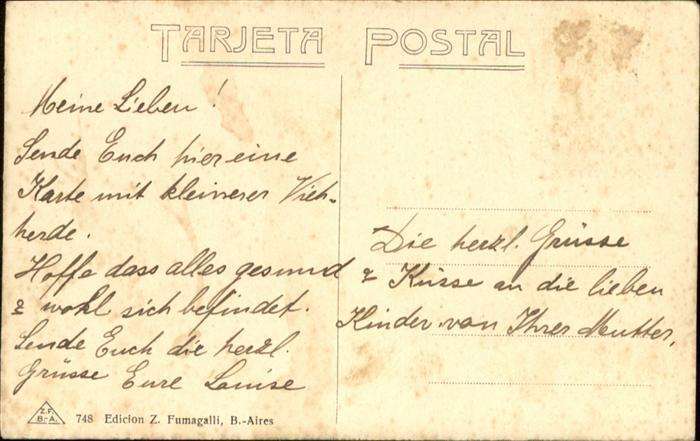 TARJETA POSTAL
Meine Lieben!
Sende Euch hier eine
Karte mit kleinerer Vieh-
herde.
Hoffe dass alles gesund
& wohl sich befindet.
Sende Euch die herzl.
Grüsse Eure Louise
Die herzl. Grüsse
& Küsse an die lieben
Kinder von Ihrer Mutter,
Z.F.
B.-A.
748 Edicion Z. Fumagalli, B.-Aires